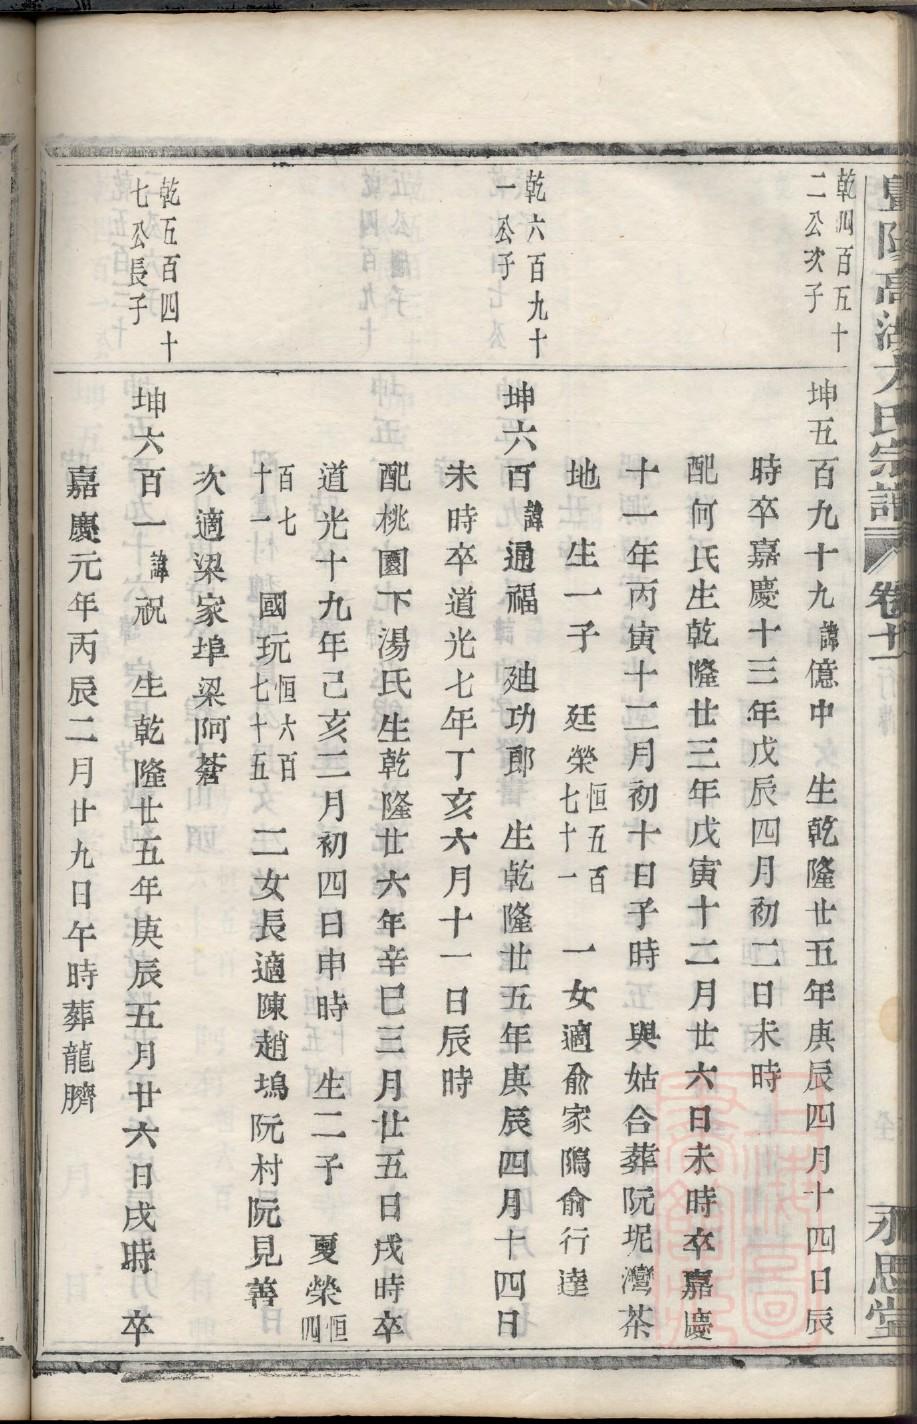 暨陽高湖方氏宗譜 卷十一 永思堂
乾四百五十
二公次子
坤五百九十九諱億中 生乾隆廿五年庚辰四月十四日辰
時卒嘉慶十三年戊辰四月初二日未時
配何氏生乾隆廿三年戊寅十二月廿六日未時卒嘉慶
十一年丙寅十二月初十日子時 與姑合葬阮坭灣茶
地 生一子 廷榮恒五百七十一 一女適俞家隖俞行達
乾六百九十
一公子
坤六百諱通福 廸功郎 生乾隆廿五年庚辰四月十四日
未時卒道光七年丁亥六月十一日辰時
配桃園下湯氏生乾隆廿六年辛巳三月廿五日戌時卒
道光十九年己亥二月初四日申時 生二子 夏榮恒四
百七十一 國玩恒六百七十五 二女長適陳趙塢阮村阮見善
次適梁家埠梁阿蒼
乾五百四十
七公長子
坤六百一諱祝 生乾隆廿五年庚辰五月廿六日戌時 卒
嘉慶元年丙辰二月廿九日午時葬龍臍